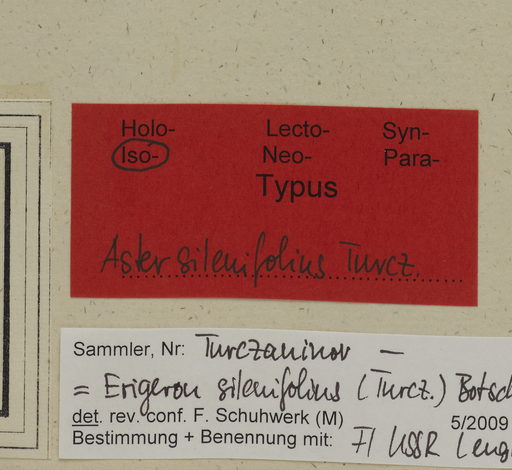 Holo- Lecto- Syn-
Iso- Neo- Para-
Typus
Aster silenifolius Turcz.
Sammler, Nr: Turczaninov –
= Erigeron silenifolius (Turcz.) Botsch
det. rev. conf. F. Schuhwerk (M) 5/2009
Bestimmung + Benennung mit: Fl USSR (engl